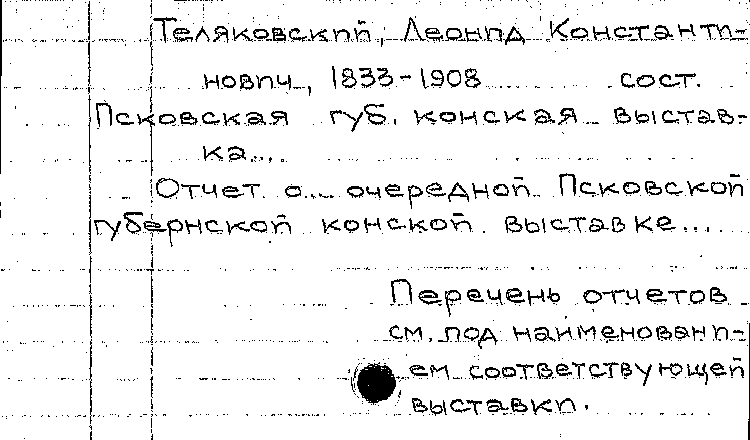 Теляковский, Леонид Константи-
нович, 1833-1908 сост.
Псковская губ. конская выстав-
ка....
Отчет о... очередной Псковской
губернской конской выставке....
Перечень отчетов
см. под наименовани-
ем соответствующей
выставки.